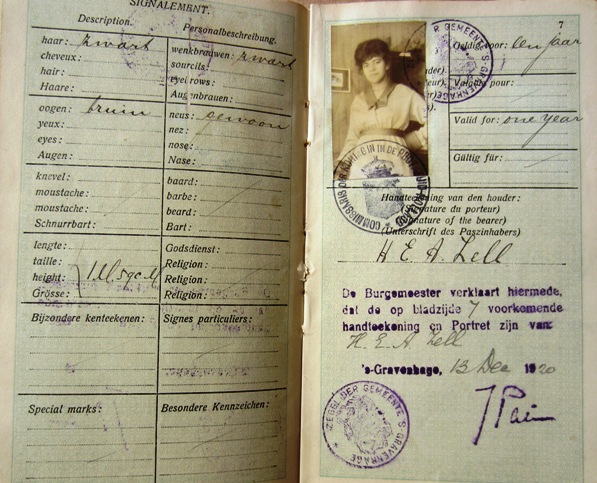 SIGNALEMENT.
Description. Personalbeschreibung.
haar: zwart
cheveux:
hair:
Haare:
wenkbrauwen: zwart
sourcils:
eyebrows:
Augenbrauen:
oogen: bruin
yeux:
eyes:
Augen:
neus: gewoon
nez:
nose:
Nase:
knevel:
moustache:
moustache:
Schnurrbart:
baard:
barbe:
beard:
Bart:
lengte:
taille:
height:
Grösse:
Godsdienst:
Religion:
Religion:
Religion:
Bijzondere kenteekenen:
Signes particuliers:
Special marks:
Besondere Kennzeichen:
7
Geldig voor: een jaar
Valable pour:
Valid for: one year
Gültig für:
Handteekening van den houder:
(Signature du porteur)
(Signature of the bearer)
(Unterschrift des Paszinhabers)
H. E. A. Lell
De Burgemeester verklaart hiermede,
dat de op bladzijde 7 voorkomende
handteekening en Portret zijn van:
H. E. A. Lell
's-Gravenhage, 13 Dec 1920
ZEGEL DER GEMEENTE 'S GRAVENHAGE